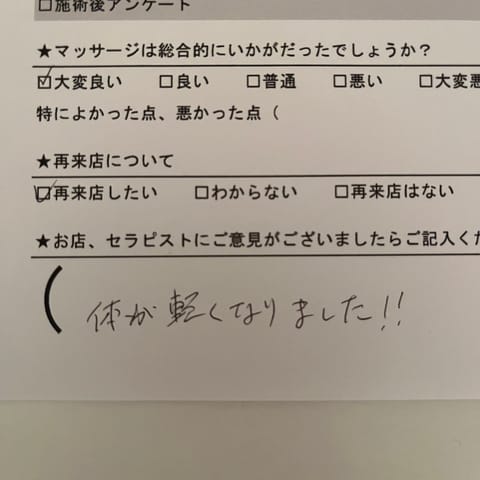 □施術後アンケート
★マッサージは総合的にいかがだったでしょうか？
☑大変良い □良い □普通 □悪い □大変悪
特によかった点、悪かった点（
★再来店について
☑再来店したい □わからない □再来店はない
★お店、セラピストにご意見がございましたらご記入くだ
（体が軽くなりました!!